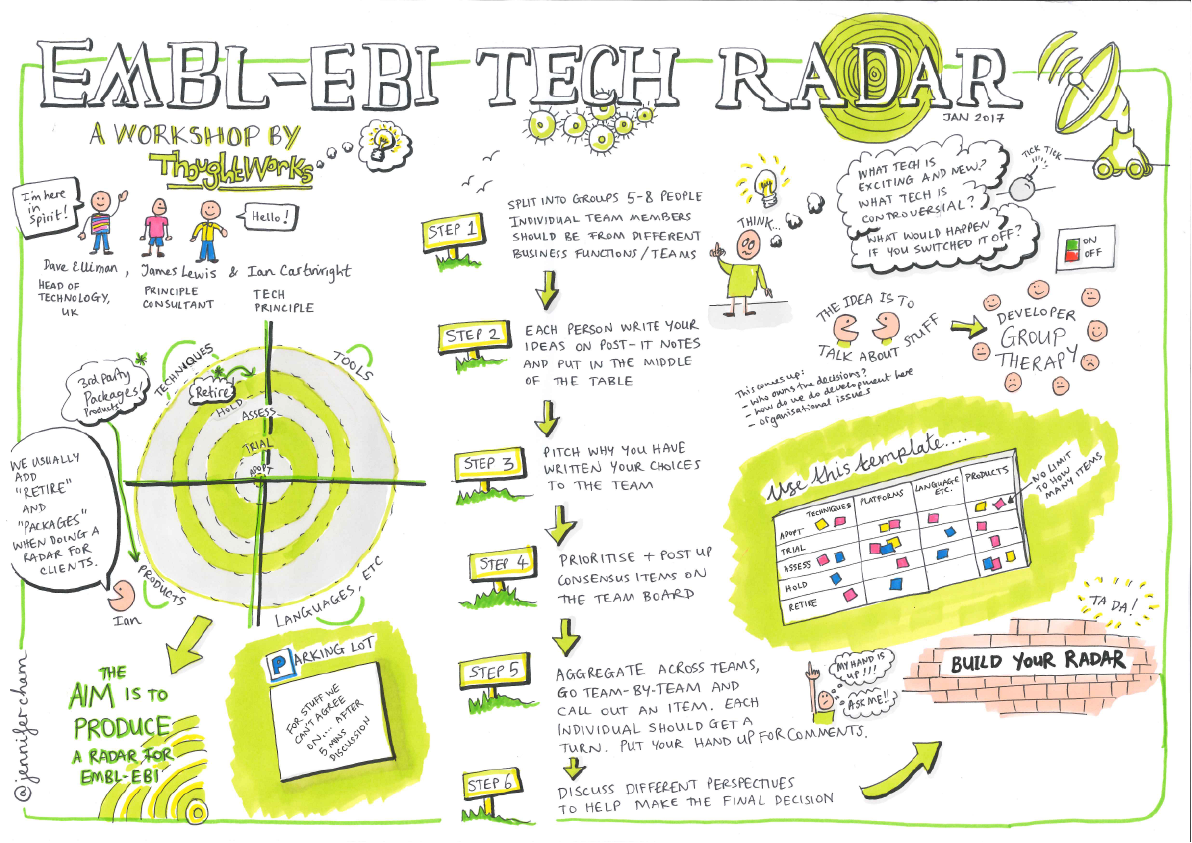 EMBL-EBI TECH RADAR
JAN 2017
A WORKSHOP BY
ThoughtWorks
I'm here
in
Spirit!
Hello!
Dave Elliman,
HEAD OF
TECHNOLOGY,
UK
James Lewis
PRINCIPLE
CONSULTANT
& Ian Cartwright
TECH
PRINCIPLE
TECHNIQUES
TOOLS
3rd party
Packages/
Products
Retire
HOLD
ASSESS
TRIAL
ADOPT
PRODUCTS
LANGUAGES, ETC
WE USUALLY
ADD
"RETIRE"
AND
"PACKAGES"
WHEN DOING A
RADAR FOR
CLIENTS.
Ian
THE
AIM IS TO
PRODUCE
A RADAR FOR
EMBL-EBI
@jennifercham
PARKING LOT
FOR STUFF WE
CAN'T AGREE
ON.... AFTER
5 MINS
DISCUSSION
STEP 1
SPLIT INTO GROUPS 5-8 PEOPLE
INDIVIDUAL TEAM MEMBERS
SHOULD BE FROM DIFFERENT
BUSINESS FUNCTIONS/TEAMS
STEP 2
EACH PERSON WRITE YOUR
IDEAS ON POST-IT NOTES
AND PUT IN THE MIDDLE
OF THE TABLE
STEP 3
PITCH WHY YOU HAVE
WRITTEN YOUR CHOICES
TO THE TEAM
STEP 4
PRIORITISE + POST UP
CONSENSUS ITEMS ON
THE TEAM BOARD
STEP 5
AGGREGATE ACROSS TEAMS,
GO TEAM-BY-TEAM AND
CALL OUT AN ITEM. EACH
INDIVIDUAL SHOULD GET A
TURN. PUT YOUR HAND UP FOR COMMENTS.
STEP 6
DISCUSS DIFFERENT PERSPECTIVES
TO HELP MAKE THE FINAL DECISION
THINK...
WHAT TECH IS
EXCITING AND NEW?
WHAT TECH IS
CONTROVERSIAL?
WHAT WOULD HAPPEN
IF YOU SWITCHED IT OFF?
TICK TICK
ON
OFF
THE IDEA IS TO
TALK ABOUT STUFF
DEVELOPER
GROUP
THERAPY
This comes up:
- who owns the decisions?
- how do we do development here
- organisational issues
Use this template....
TECHNIQUES
PLATFORMS
LANGUAGE
ETC.
PRODUCTS
ADOPT
TRIAL
ASSESS
HOLD
RETIRE
NO LIMIT
TO HOW
MANY ITEMS
TA DA!
BUILD YOUR RADAR
MY HAND IS
UP!!!
ASK ME!!